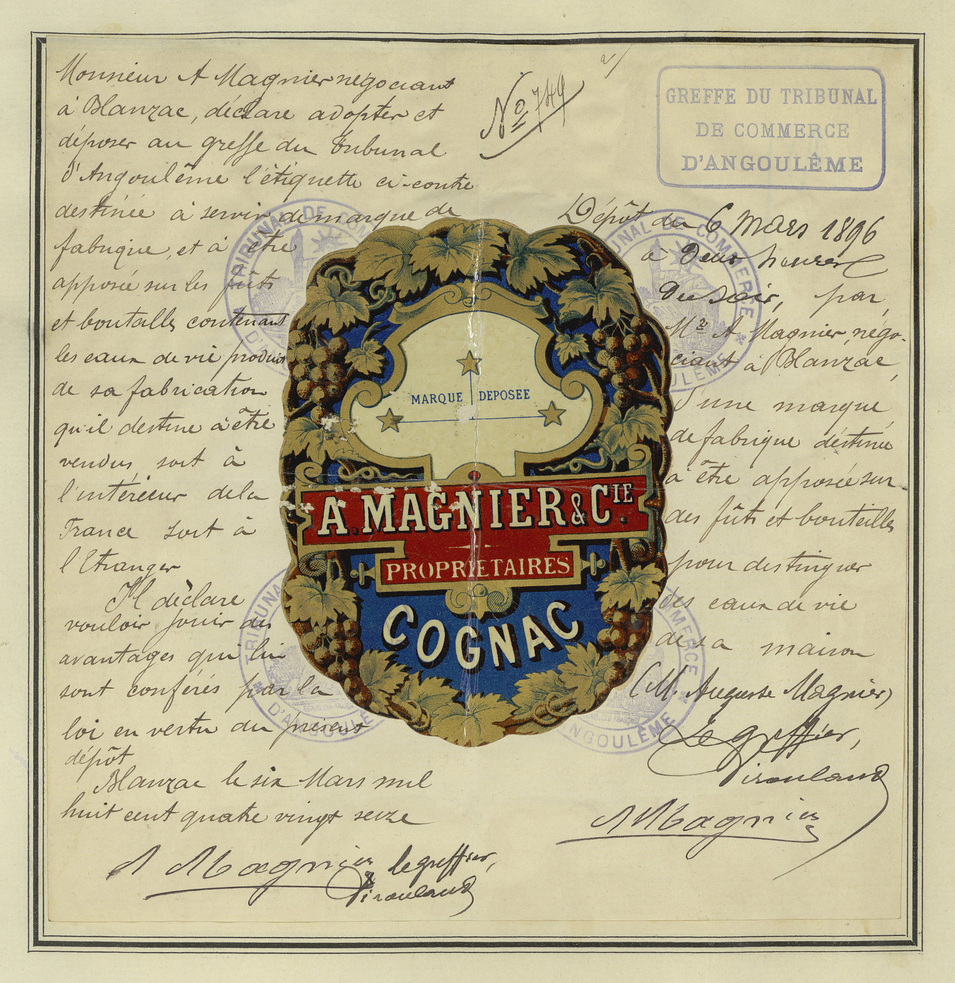 Monsieur A Magnier négociant
à Blanzac, déclare adopter et
déposer au greffe du Tribunal
d'Angoulême l'étiquette ci-contre
destinée à servir de marque de
fabrique, et à être
apposée sur les fûts
et boutalls contenant
les eaux de vie produits
de sa fabrication
qu'il destine à être
vendus, soit à
l'intérieur de la
France soit à
l'Etranger
Il déclare
vouloir jouir des
avantages qui lui
sont conférés par la
loi en vertu du présent
dépôt
Blanzac le six Mars mil
huit cent quatre vingt seize
A Magnier le greffier,
Piroulaud
No 749
GREFFE DU TRIBUNAL
DE COMMERCE
D'ANGOULÊME
Dépôt du 6 Mars 1896
à Deux heures
du soir, par
Mr A Magnier, négo-
ciant à Blanzac,
d'une marque
de fabrique destinée
à être apposée sur
des fûts et bouteilles
pour distinguer
les eaux de vie
de sa maison
(M. Auguste Magnier)
Le greffier,
Piroulaud
A Magnier
MARQUE DEPOSEE
A. MAGNIER & CIE
PROPRIETAIRES
COGNAC
TRIBUNAL DE COMMERCE
D'ANGOULÊME
TRIBUNAL DE COMMERCE
D'ANGOULÊME
TRIBUNAL
D'ANGOULÊME
COMMERCE
D'ANGOULÊME